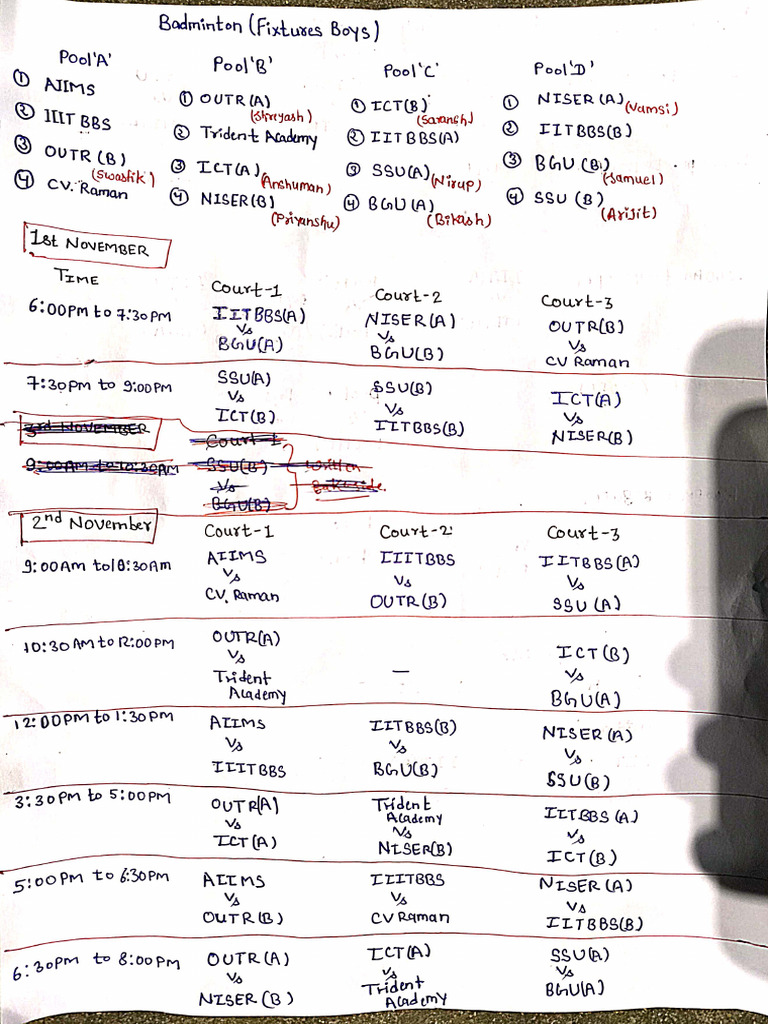 Badminton (Fixtures Boys)
Pool 'A' Pool 'B' Pool 'C' Pool 'D'
① AIIMS ① OUTR(A) (Shreyash) ① ICT(B) (Saransh) ① NISER(A) (Vamsi)
② IIIT BBS ② Trident Academy ② IITBBS(A) ② IITBBS(B)
③ OUTR(B) (Swastik) ③ ICT(A) (Anshuman) ③ SSU(A) (Nirup) ③ BGU(B) (Samuel)
④ CV. Raman ④ NISER(B) (Priyanshu) ④ BGU(A) (Bikash) ④ SSU (B) (Arijit)
1st NOVEMBER
TIME Court-1 Court-2 Court-3
6:00PM to 7:30PM IITBBS(A) NISER(A) OUTR(B)
Vs Vs Vs
BGU(A) BGU(B) CV Raman
7:30PM to 9:00PM SSU(A) SSU(B) ICT(A)
Vs Vs Vs
ICT(B) IITBBS(B) NISER(B)
3rd NOVEMBER Court-1
9:00AM to 10:30AM SSU(B) written
Vs
BGU(B)
2nd November Court-1 Court-2 Court-3
9:00AM to 10:30AM AIIMS IIITBBS IITBBS(A)
Vs Vs Vs
CV. Raman OUTR(B) SSU (A)
10:30AM to 12:00PM OUTR(A) ICT(B)
Vs — Vs
Trident Academy BGU(A)
12:00PM to 1:30PM AIIMS IITBBS(B) NISER(A)
Vs Vs Vs
IIITBBS BGU(B) SSU(B)
3:30PM to 5:00PM OUTR(A) Trident Academy IITBBS (A)
Vs Vs Vs
ICT(A) NISER(B) ICT(B)
5:00PM to 6:30PM AIIMS IIITBBS NISER(A)
Vs Vs Vs
OUTR(B) CV Raman IITBBS(B)
6:30PM to 8:00PM OUTR(A) ICT(A) SSU(A)
Vs Vs Vs
NISER (B) Trident Academy BGU(A)